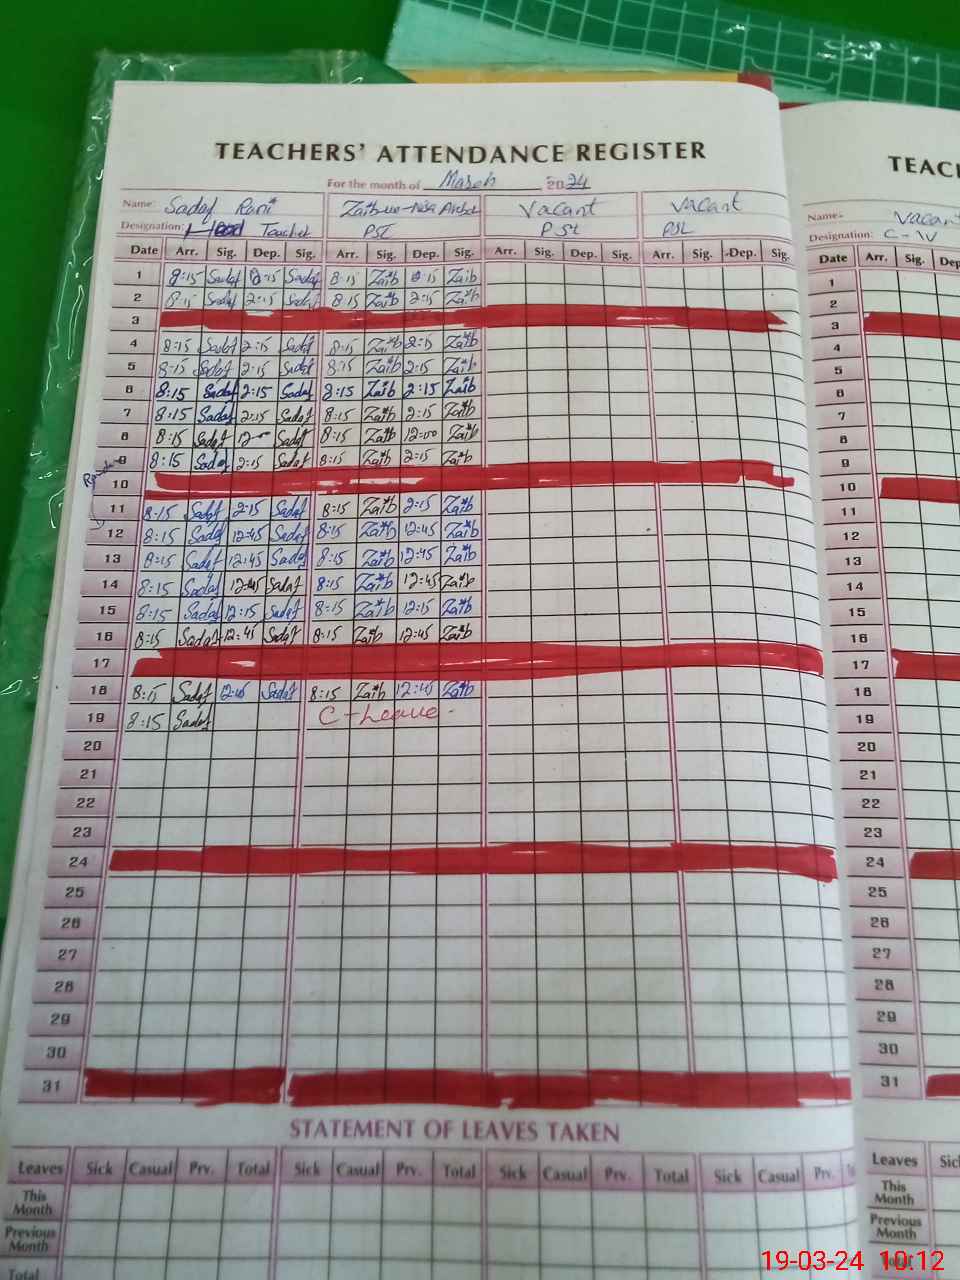 TEACHERS' ATTENDANCE REGISTER
TEAC
For the month of March 2024
Name: Sadaf Rani Zaib-un-Nisa Vacant Vacant
Name: Vacant
Designation: Head Teacher PST PST PST
Designation: C-IV
Date Arr. Sig. Dep. Sig. Arr. Sig. Dep. Sig. Arr. Sig. Dep. Sig. Arr. Sig. Dep. Sig.
Date Arr. Sig. Dep
1 8:15 Sadaf 2:15 Sadaf 8:15 Zaib 2:15 Zaib 1
2 8:15 Sadaf 2:15 Sadaf 8:15 Zaib 2:15 Zaib 2
3 3
4 8:15 Sadaf 2:15 Sadaf 8:15 Zaib 2:15 Zaib 4
5 8:15 Sadaf 2:15 Sadaf 8:15 Zaib 2:15 Zaib 5
6 8:15 Sadaf 2:15 Sadaf 8:15 Zaib 2:15 Zaib 6
7 8:15 Sadaf 2:15 Sadaf 8:15 Zaib 2:15 Zaib 7
8 8:15 Sadaf 12-00 Sadaf 8:15 Zaib 12:00 Zaib 8
9 8:15 Sadaf 2:15 Sadaf 8:15 Zaib 2:15 Zaib 9
10 10
11 8:15 Sadaf 2:15 Sadaf 8:15 Zaib 2:15 Zaib 11
12 8:15 Sadaf 12:45 Sadaf 8:15 Zaib 12:45 Zaib 12
13 8:15 Sadaf 12:45 Sadaf 8:15 Zaib 12:45 Zaib 13
14 8:15 Sadaf 12:45 Sadaf 8:15 Zaib 12:45 Zaib 14
15 8:15 Sadaf 12:15 Sadaf 8:15 Zaib 12:15 Zaib 15
16 8:15 Sadaf 12:45 Sadaf 8:15 Zaib 12:45 Zaib 16
17 17
18 8:15 Sadaf 12:45 Sadaf 8:15 Zaib 12:45 Zaib 18
19 8:15 Sadaf C-Leave 19
20 20
21 21
22 22
23 23
24 24
25 25
26 26
27 27
28 28
29 29
30 30
31 31
STATEMENT OF LEAVES TAKEN
Leaves Sick Casual Prv. Total Sick Casual Prv. Total Sick Casual Prv. Total Sick Casual Prv. To
Leaves Sic
This Month
This Month
Previous Month
Previous Month
Total
Total
19-03-24 10:12